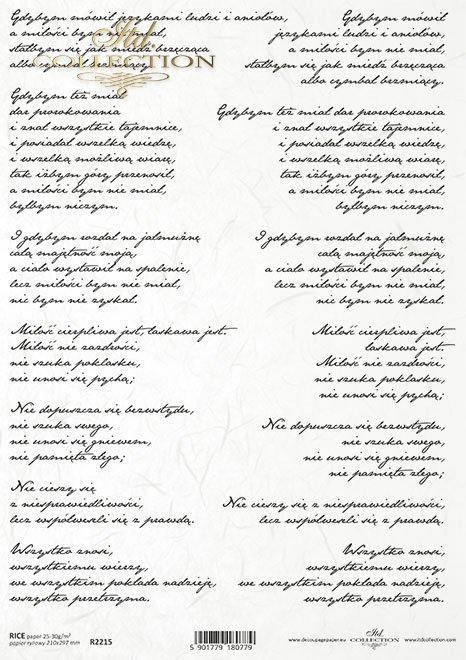 Gdybym mówił językami ludzi i aniołów,
a miłości bym nie miał,
stałbym się jak miedź brzęcząca
albo cymbał brzmiący.
Gdybym też miał
dar prorokowania
i znał wszystkie tajemnice,
i posiadał wszelką wiedzę,
i wszelką możliwą wiarę,
tak iżbym góry przenosił,
a miłości bym nie miał,
byłbym niczym.
I gdybym rozdał na jałmużnę
całą majętność moją,
a ciało wystawił na spalenie,
lecz miłości bym nie miał,
nic bym nie zyskał.
Miłość cierpliwa jest, łaskawa jest.
Miłość nie zazdrości,
nie szuka poklasku,
nie unosi się pychą;
Nie dopuszcza się bezwstydu,
nie szuka swego,
nie unosi się gniewem,
nie pamięta złego;
Nie cieszy się
z niesprawiedliwości,
lecz współweseli się z prawdą.
Wszystko znosi,
wszystkiemu wierzy,
we wszystkim pokłada nadzieję,
wszystko przetrzyma.
Itd.
COLLECTION
Gdybym mówił
językami ludzi i aniołów,
a miłości bym nie miał,
stałbym się jak miedź brzęcząca
albo cymbał brzmiący.
Gdybym też miał dar prorokowania
i znał wszystkie tajemnice,
i posiadał wszelką wiedzę,
i wszelką możliwą wiarę,
tak iżbym góry przenosił,
a miłości bym nie miał,
byłbym niczym.
I gdybym rozdał na jałmużnę
całą majętność moją,
a ciało wystawił na spalenie,
lecz miłości bym nie miał,
nic bym nie zyskał.
Miłość cierpliwa jest,
łaskawa jest.
Miłość nie zazdrości,
nie szuka poklasku,
nie unosi się pychą;
Nie dopuszcza się bezwstydu,
nie szuka swego,
nie unosi się gniewem,
nie pamięta złego;
Nie cieszy się z niesprawiedliwości,
lecz współweseli się z prawdą.
Wszystko znosi,
wszystkiemu wierzy,
we wszystkim pokłada nadzieję,
wszystko przetrzyma.
RICE paper 25-30g/m²
papier ryżowy 210x297 mm
R2215
5 901779 180779
www.decoupagepaper.eu
Itd.
COLLECTION
www.itdcollection.com